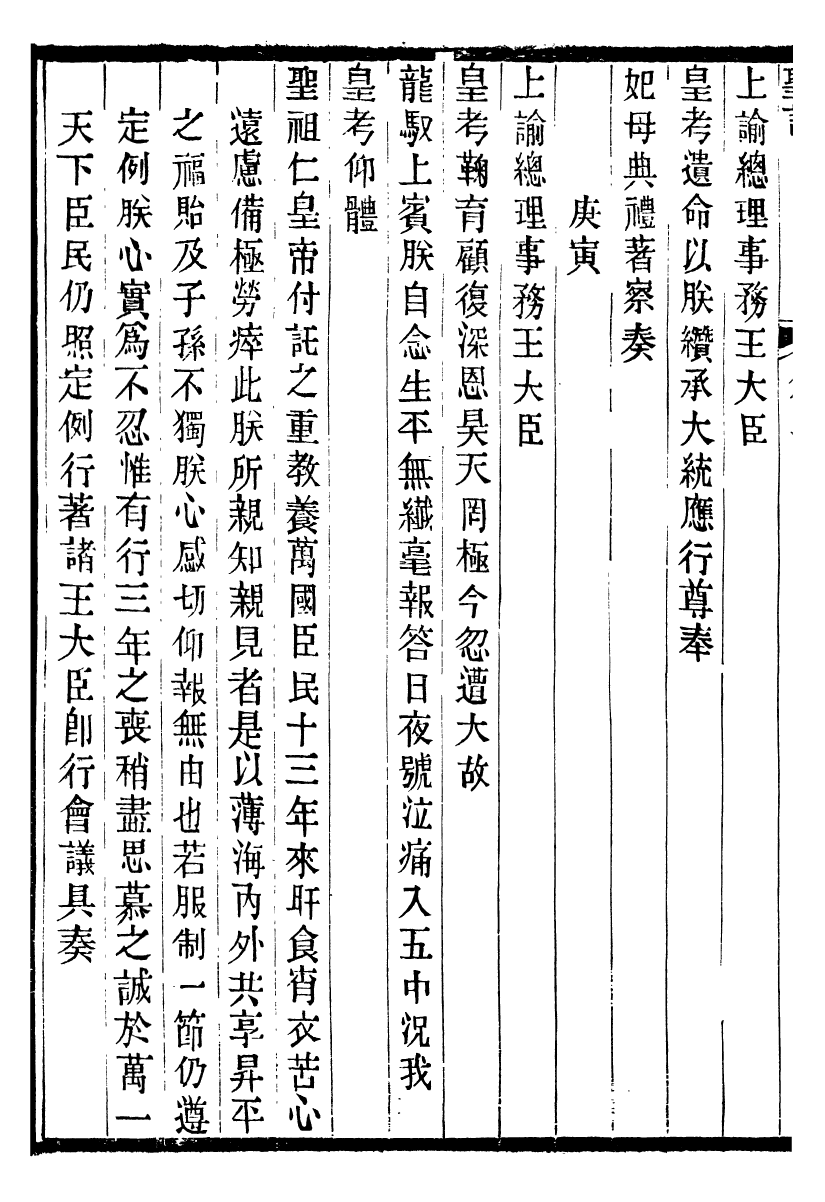 上諭總理事務王大臣
皇考遺命以朕纘承大統應行尊奉
妃母典禮著察奏
庚寅
上諭總理事務王大臣
皇考鞠育顧復深恩昊天罔極今忽遭大故
龍馭上賓朕自念生平無纖毫報答日夜號泣痛入五中況我
皇考仰體
聖祖仁皇帝付託之重教養萬國臣民十三年來旰食宵衣苦心
遠慮備極勞瘁此朕所親知親見者是以薄海內外共享昇平
之福貽及子孫不獨朕心感切仰報無由也若服制一節仍遵
定例朕心實爲不忍惟有行三年之喪稍盡思慕之誠於萬一
天下臣民仍照定例行著諸王大臣卽行會議具奏